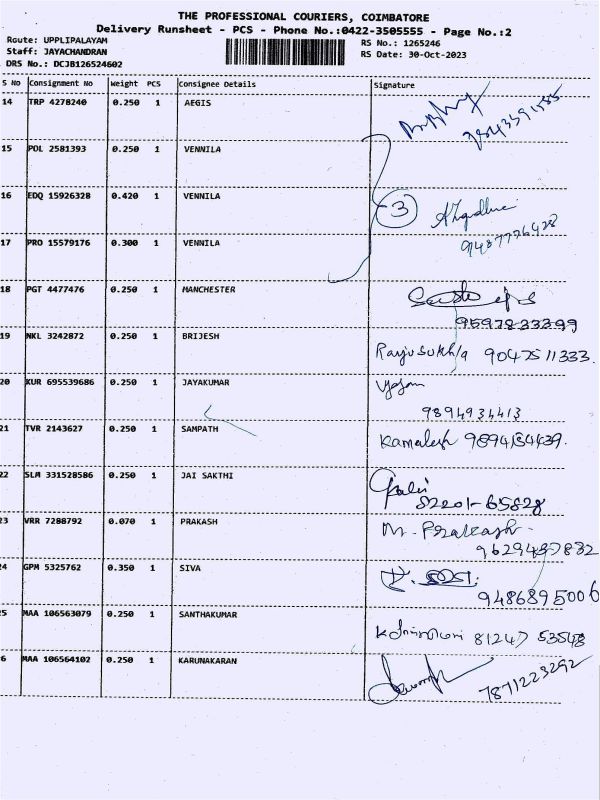 THE PROFESSIONAL COURIERS, COIMBATORE
Delivery Runsheet - PCS - Phone No.:0422-3505555 - Page No.:2
Route: UPPLIPALAYAM RS No.: 1265246
Staff: JAYACHANDRAN RS Date: 30-Oct-2023
DRS No.: DCJB126524602
S No Consignment No Weight PCS Consignee Details Signature
14 TRP 4278240 0.250 1 AEGIS
15 POL 2581393 0.250 1 VENNILA
16 EDQ 15926328 0.420 1 VENNILA 3
17 PRO 15579176 0.300 1 VENNILA
18 PGT 4477476 0.250 1 MANCHESTER
9597833399
19 NKL 3242872 0.250 1 BRIJESH 9047511333.
20 KUR 695539686 0.250 1 JAYAKUMAR
9894934413
21 TVR 2143627 0.250 1 SAMPATH Kamalesh 9894134439.
22 SLM 331528586 0.250 1 JAI SAKTHI
82201-65828
23 VRR 7288792 0.070 1 PRAKASH M. Prakash
24 GPM 5325762 0.350 1 SIVA
9486895006
25 MAA 106563079 0.250 1 SANTHAKUMAR 81247 53548
26 MAA 106564102 0.250 1 KARUNAKARAN 7871223292